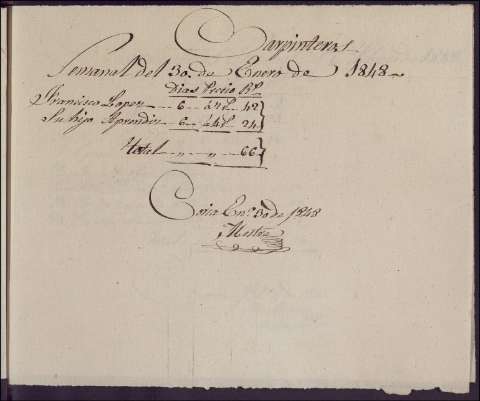 Carpintero
Semanal del 30 de Enero de 1848
Dias Precio Rs.
Francisco Lopez 6 a 7 rs. 42
Su hijo Aprendiz 6 a 4 rs. 24
Total 66
En.º 30 de 1848